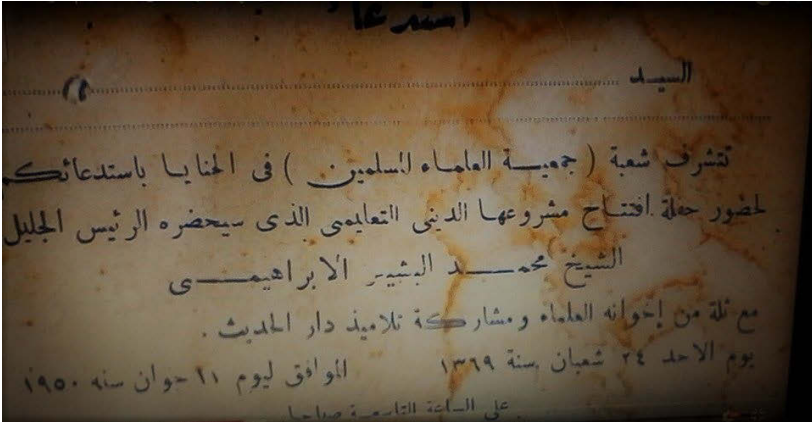 استدعاء
السيد
تتشرف شعبة ( جمعية العلماء المسلمين ) فى الحنايا باستدعائكم
لحضور حفلة افتتاح مشروعها الدينى التعليمى الذى سيحضره الرئيس الجليل
الشيخ محمد البشير الابراهيمى
مع ثلة من إخوانه العلماء ومشاركة تلاميذ دار الحديث .
يوم الاحد ٢٤ شعبان سنة ١٣٦٩ الموافق ليوم ١١ جوان سنه ١٩٥٠
على الساعة التاسعة صباحا